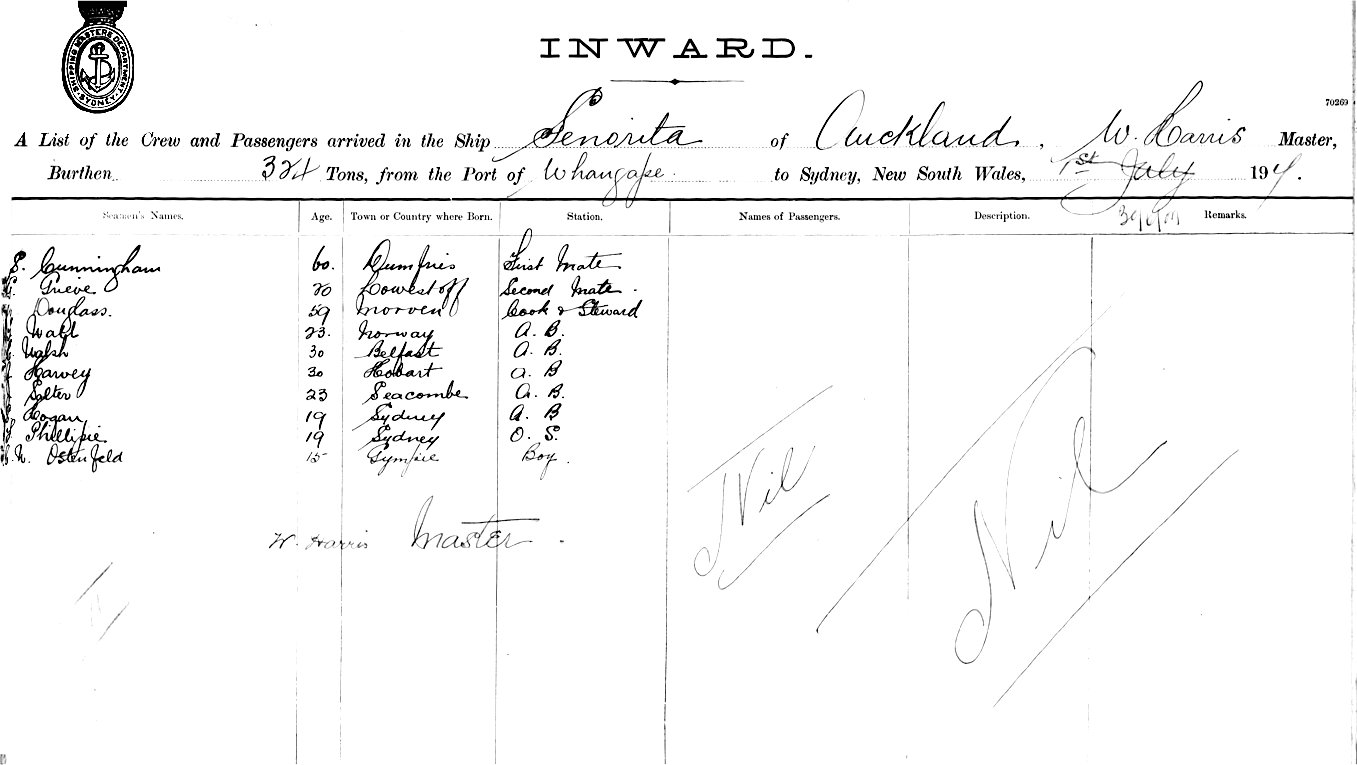 SHIPPING MASTERS DEPARTMENT. SYDNEY.
INWARD.
70269
A List of the Crew and Passengers arrived in the Ship Senorita of Auckland, W. Harris Master,
Burthen 324 Tons, from the Port of Whangape to Sydney, New South Wales, 1st July 197.
Seamen's Names. Age. Town or Country where Born. Station. Names of Passengers. Description. Remarks.
S. Cunningham 60. Dumfries First Mate
Grieve 20 Lowestoff Second Mate.
Douglass. 59 Morven Cook & Steward
Wahl 23. Norway A. B.
Walsh 30 Belfast A. B.
Harvey 30 Hobart A. B
Salter 23 Seacombe A. B.
Hogan 19 Sydney A. B
Phillipie 19 Sydney O. S.
N. Ostenfeld 15 Gympie Boy.
Nil Nil
W. Harris Master.